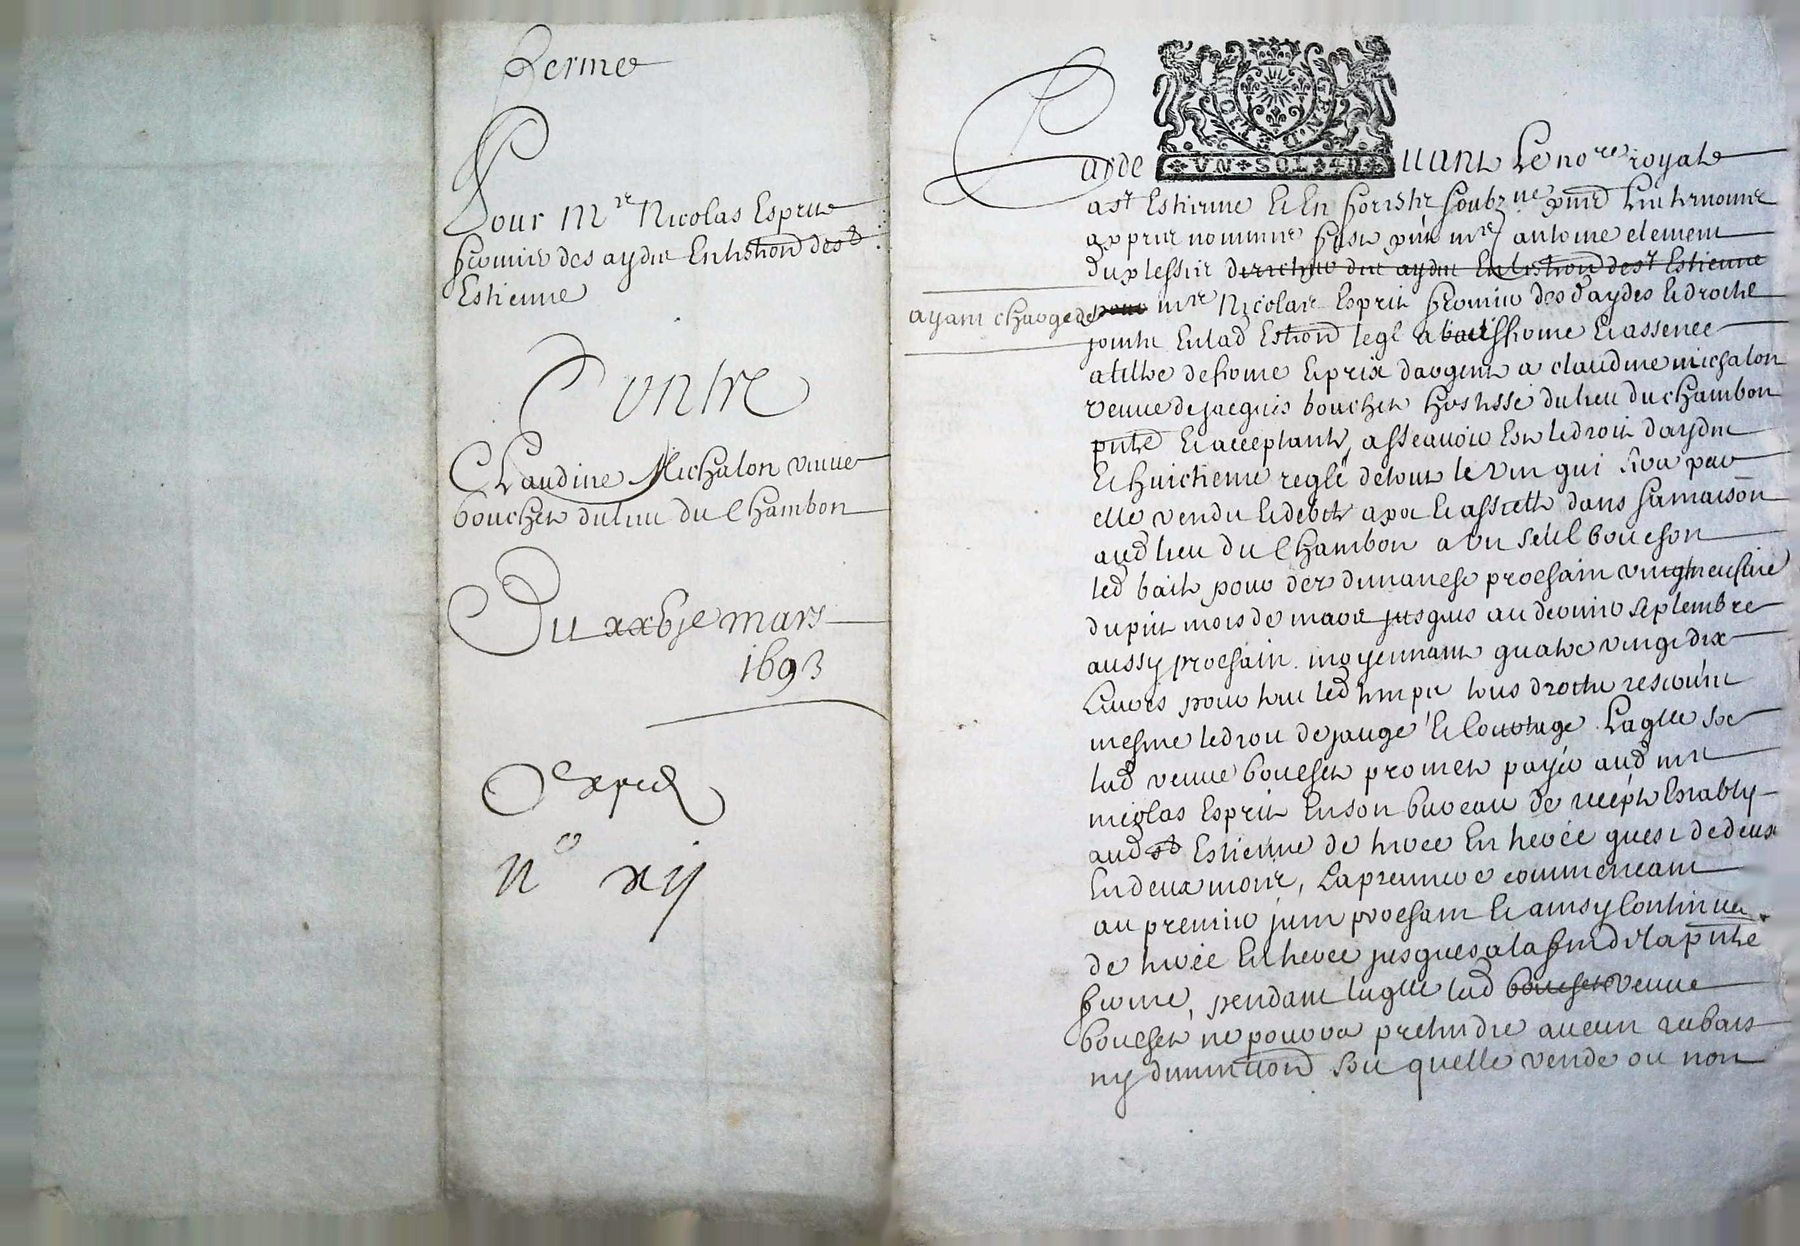 ferme
Pour Mre Nicolas Esprit
fermier des aydes en lestion de st
Estienne
Contre
Claudine Michalon veuve
bouchet du lieu du Chambon
Du xxbje mars
1693
Exped
No xij
VN SOL 4D
Par de uant Le nore royal
a st Estienne et en forestz soubzne
apprez nomme mre antoine clement
duplessis
ayant charge de
mre Nicolas Esprit fermier des d aydes et droitz
joints en lad Estion leql a bailh ferme et assence
a tiltre de ferme et prix dargent a claudine michalon
veuve de jacques bouchet hostesse du lieu du chambon
pnte et acceptante, assçavoir est le droit daydes
et huictieme reglé de tout le vin qui sera par
elle vendu et debité a pot et assiette dans sa maison
aud lieu du Chambon a un seul bouchon
led bail pour dez dimanche prochain vingtneufuie
du pnt mois de mars jusques au dernier septembre
aussy prochain moyennant quatre vingt dix
Livres pour tout led temps tous droitz
mesme le droit de jauge et courtage Laqlle soe
lad veuve bouchet promet payer aud mre
nicolas Esprit en son bureau de recepte Estably
aud st Estienne de termee en termee quest de deux
en deux mois, La premiere commencant
au premier juin prochain et ainsy continuer
de termee en termee jusques a la fin de la pnte
ferme, pendant laqlle lad bouchet veuve
bouchet ne pourra prethendre aucun rabais
ny diminution soit quelle vende ou non